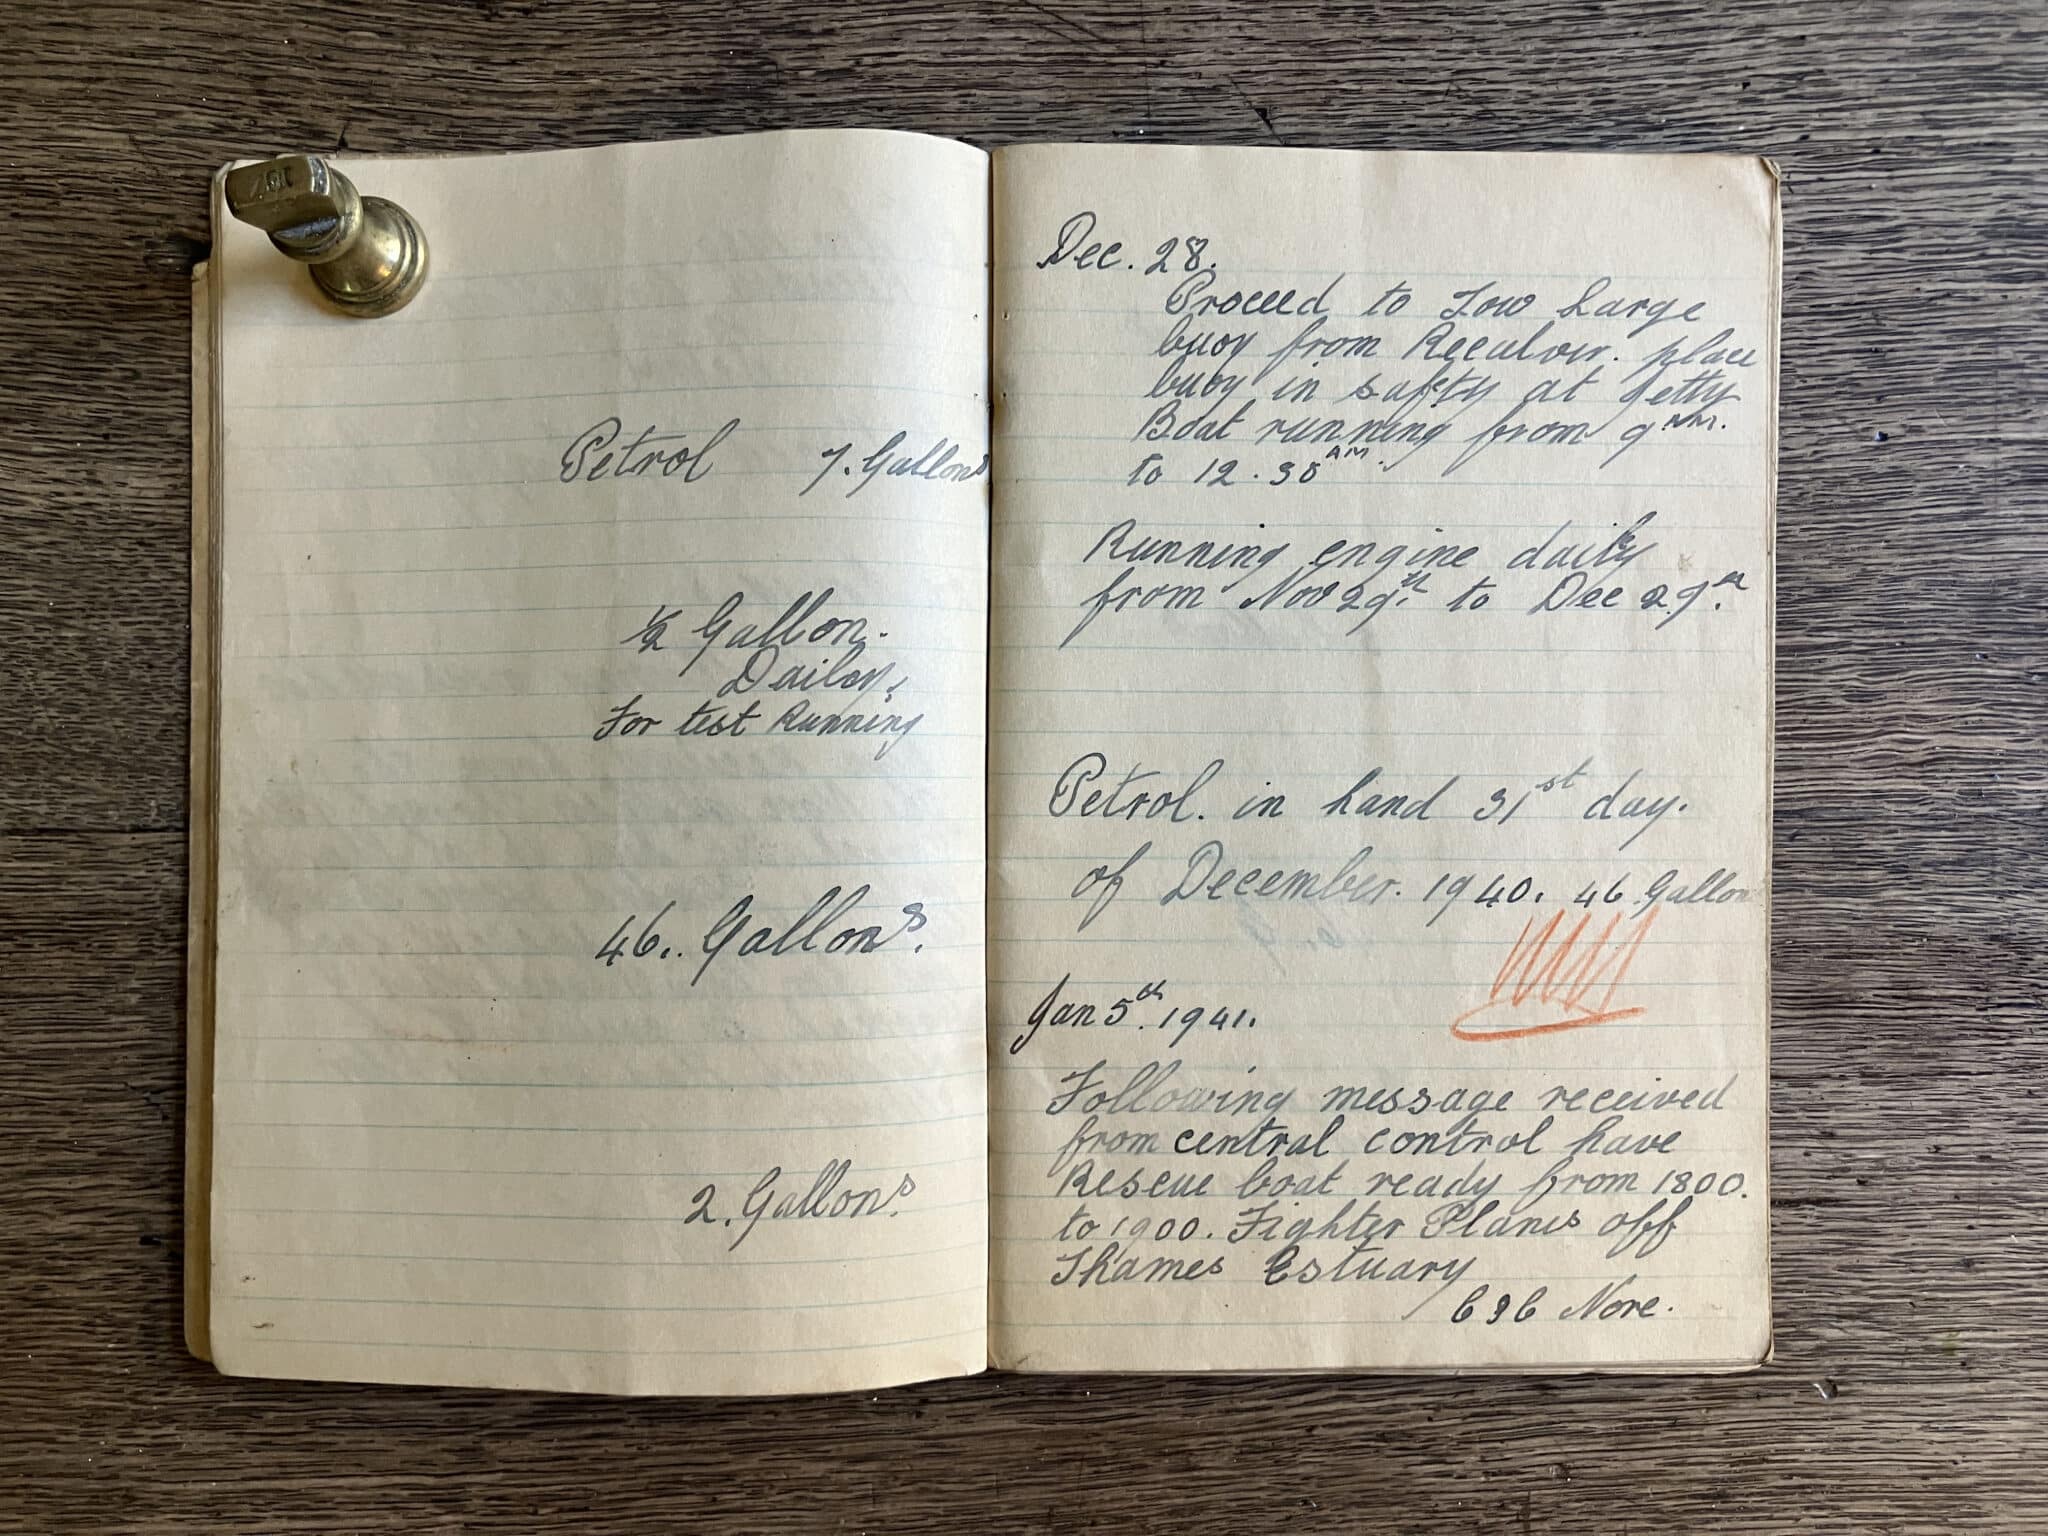 Petrol 7. Gallons
1/2 Gallon.
Dailey.
For test Running
46.. Gallons.
2. Gallons.
Dec. 28.
Proceed to Tow Large
buoy from Reculver. place
buoy in safty at Jetty
Boat running from 9 AM.
to 12.30 AM.
Running engine daily
from Nov 29th. to Dec 29th.
Petrol. in hand 31st day.
of December. 1940. 46 Gallon
Jan 5th. 1941.
Following message received
from central control have
Rescue boat ready from 1800.
to 1900. Fighter Planes off
Thames Estuary
696 Nore.